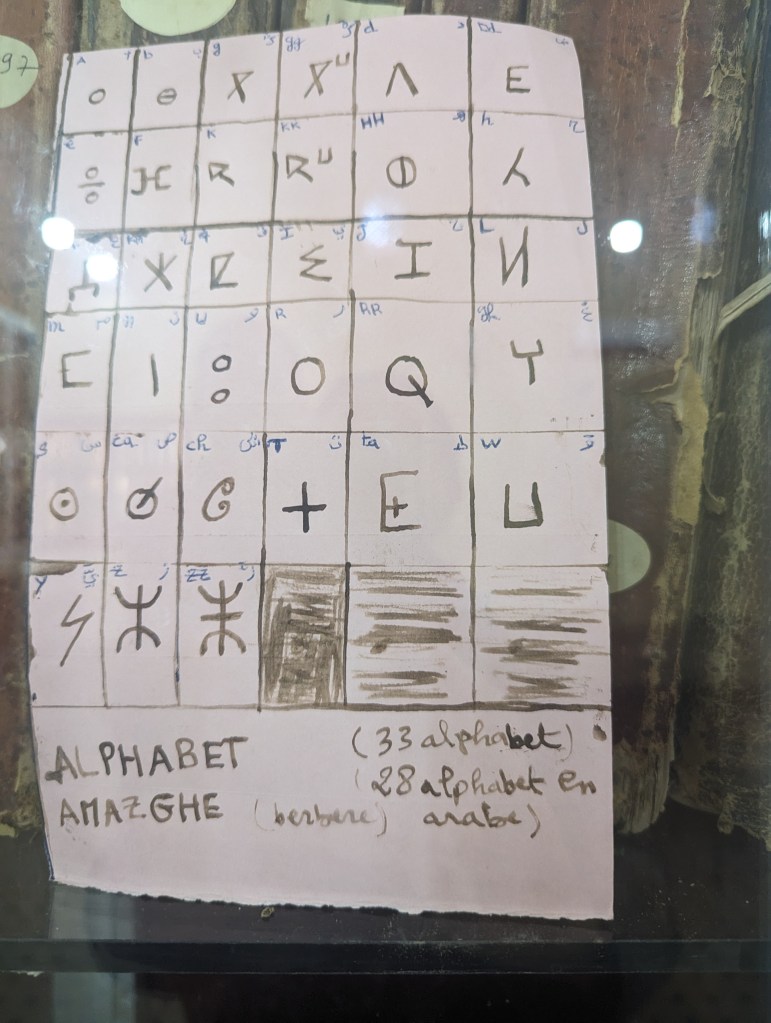 A b g gg d Dd
ⴰ ⴱ ⴳ ⴳⵯ ⴷ ⴹ
e F K KK HH ه h ح
ⴻ ⴼ ⴽ ⴽⵯ ⵀ ⵃ
ع q I J L ل
ⵄ ⵅ ⵇ ⵉ ⵊ ⵍ
m م n ن U و R ر RR gh غ
ⵎ ⵏ ⵓ ⵔ ⵕ ⵖ
S س ça ص ch ش T ت ta ط W و
ⵙ ⵚ ⵛ ⵜ ⵟ ⵡ
Y ي Z ز ZZ
ⵢ ⵣ ⵥ
ALPHABET (33 alphabet)
(28 alphabet en
AMAZGHE (berbere) arabe)